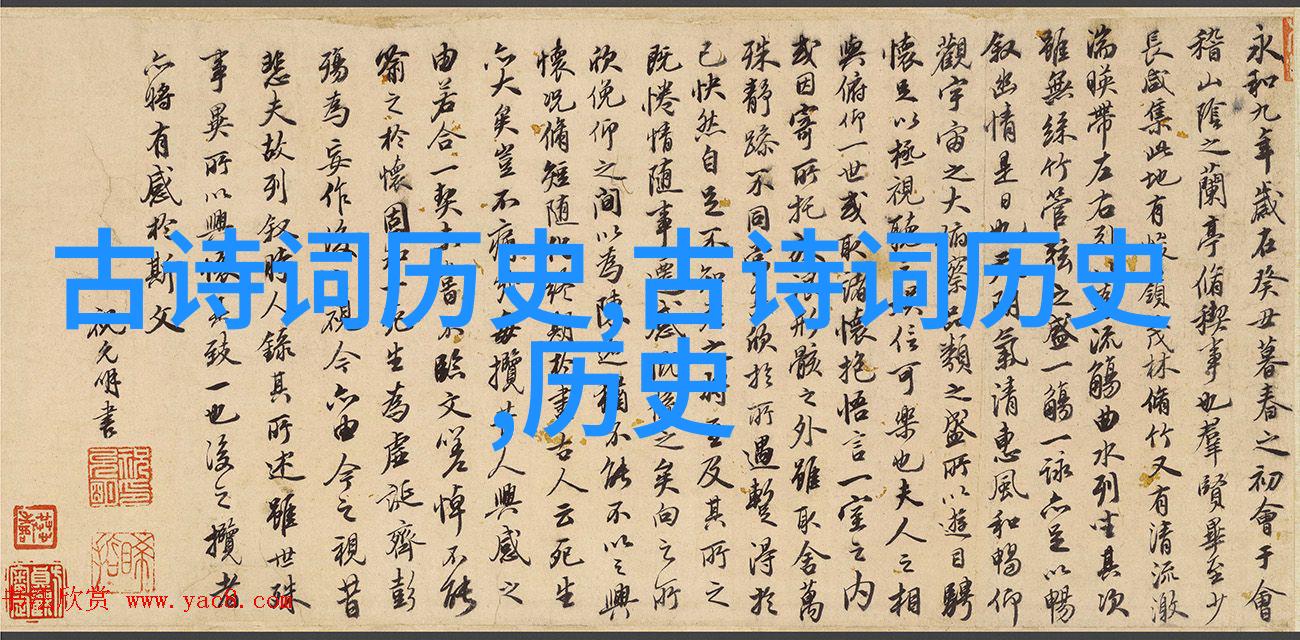 永和九年歲在癸丑暮春之初會于會
稽山陰之蘭亭脩稧事也羣賢畢至少
長咸集此地有領茂林脩竹又有清流激
湍暎帶左右流觴曲水列坐其次
雖無絲竹管弦之盛一觴一詠亦足以暢
叙幽情是日也天朗氣清惠風和暢仰
觀宇宙之大俯察品類之盛所以遊目騁
懷足以極視聽信可樂也夫人之相
與俯仰一世或取諸懷抱悟言一室之內
或因寄所托形骸之外雖取舍萬
殊静躁不同欣於所遇暫得於
己快然自足不知老之將至及其所之
既惓情随事遷感慨係之矣向之所
欣俛仰之間以為陳迹猶不能不以之興
懷况脩短随化終期於盡古人云死生
亦大矣豈不痛每攬人興感之
由若合一契不臨文嗟悼不能
喻之於懷固知一死生為虛誕齊彭
殤為妄作後視今亦由今之視昔
悲夫故列叙時人錄其所述雖世殊
事異所以興懷致一也後之攬者
亦將有感於斯文
祝允明書
古诗词历史,古诗词历史
,历史
欣赏 www.yac8.com